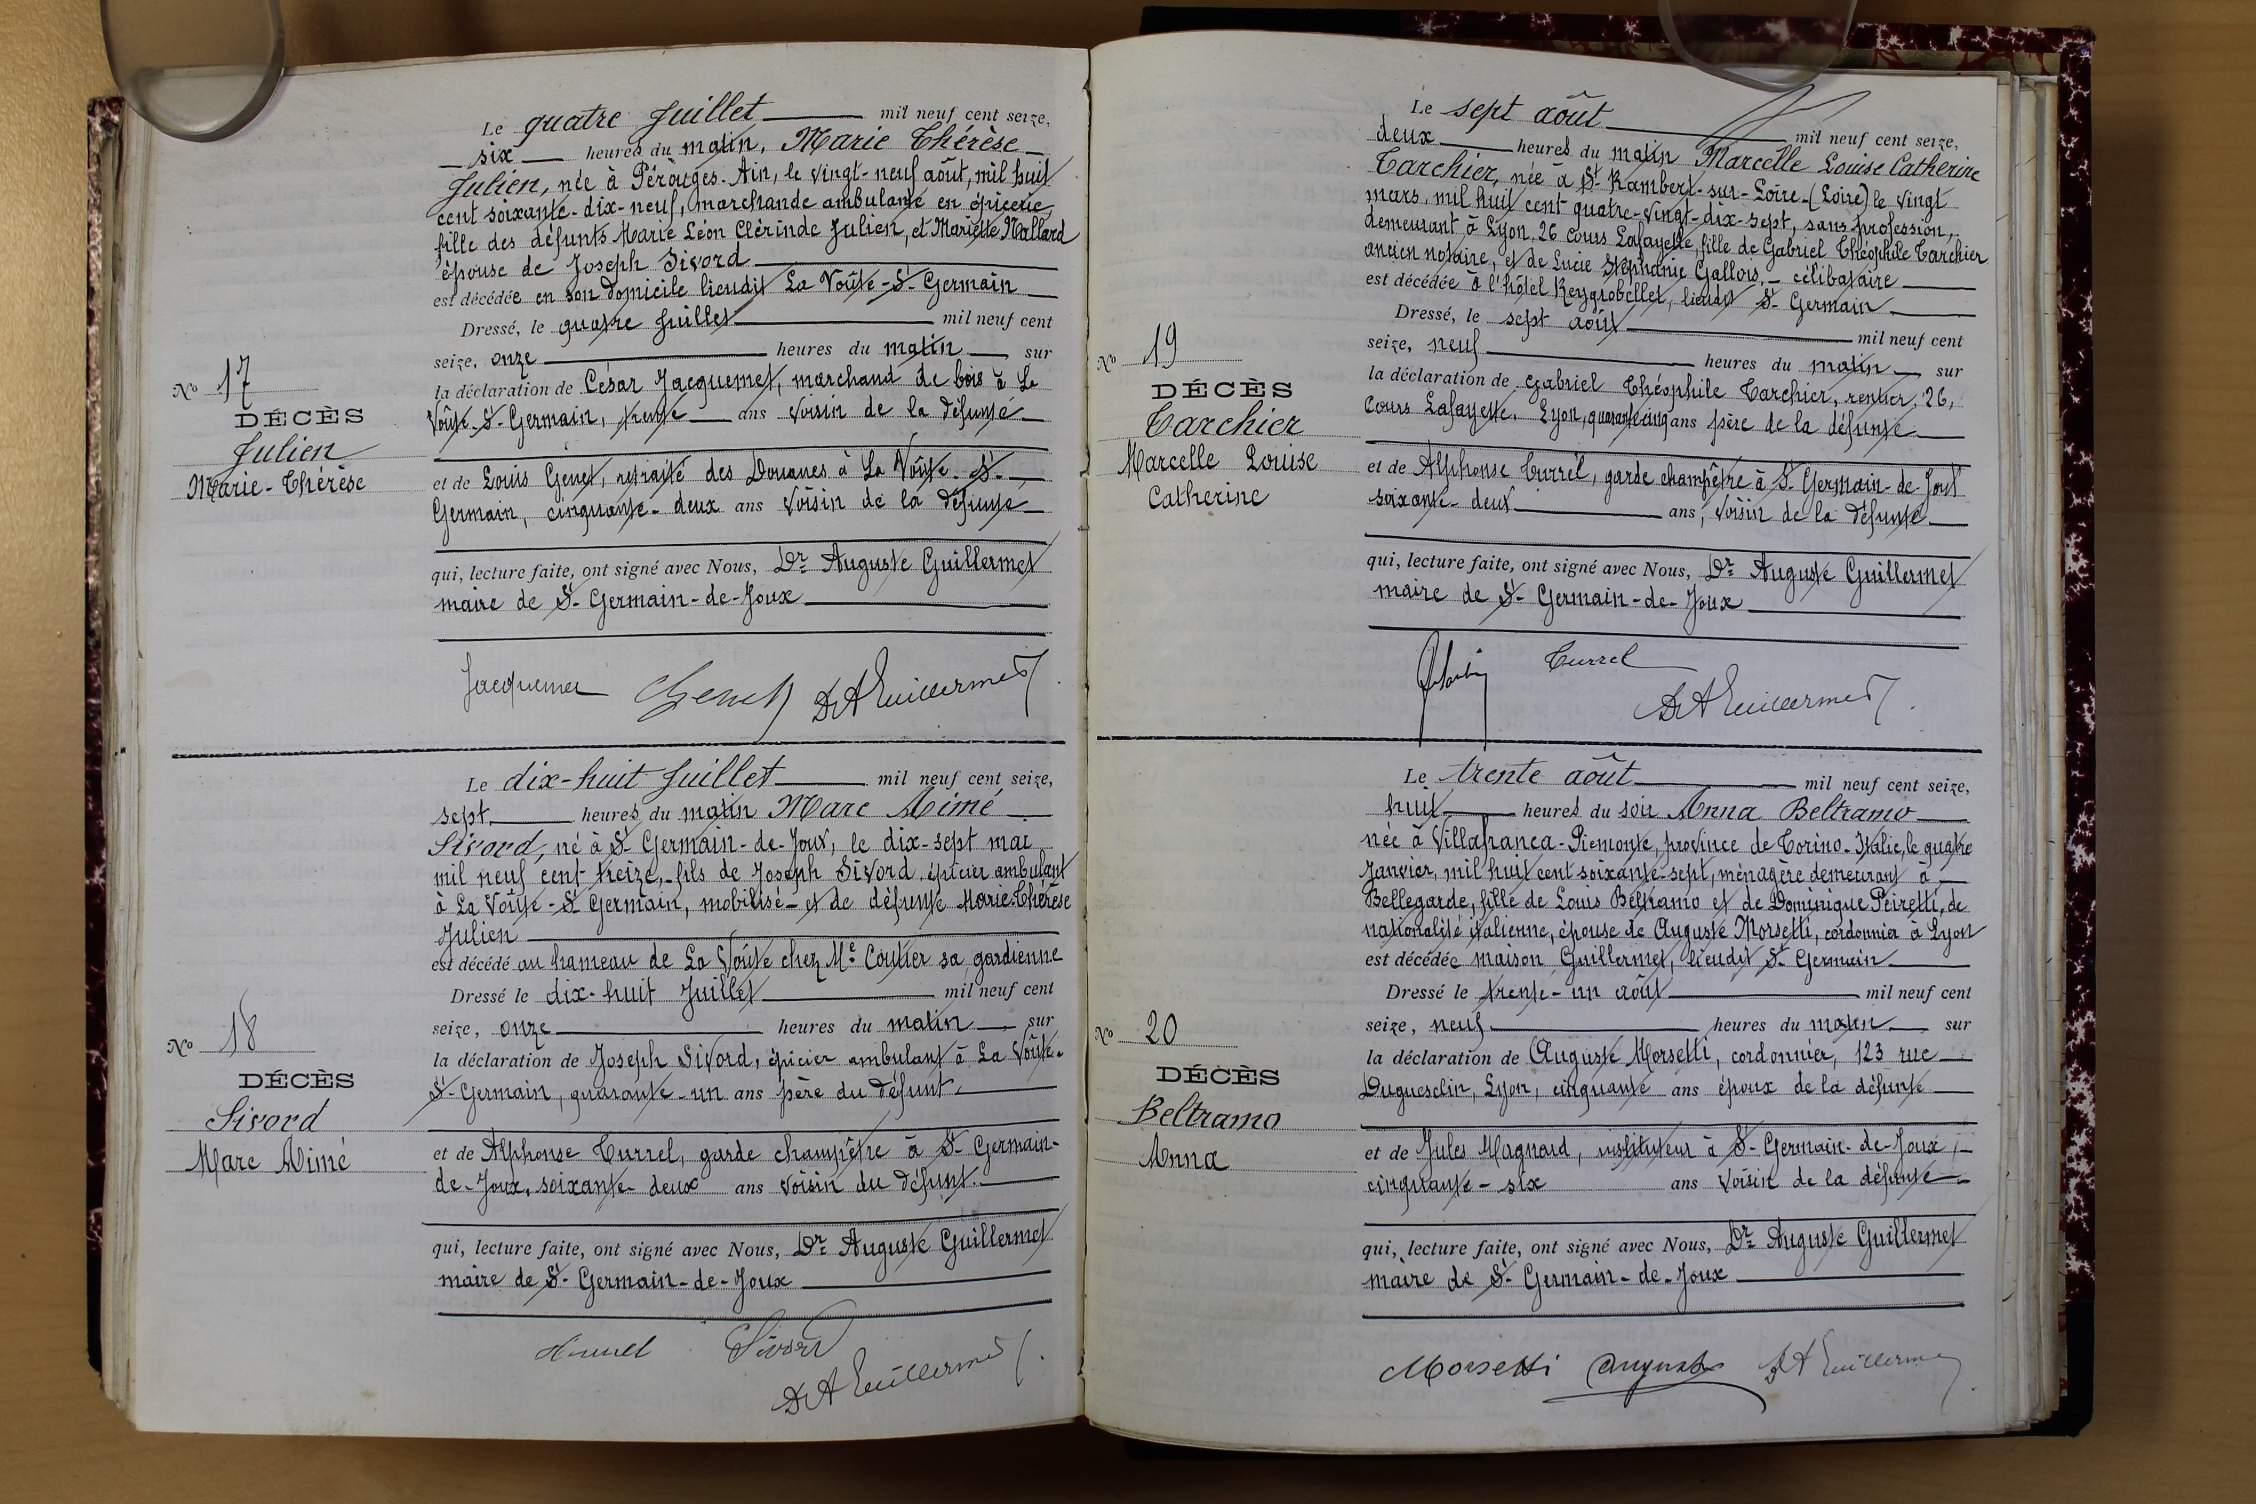 Le quatre Juillet mil neuf cent seize,
six heures du matin, Marie Thérèse
Julien, née à Pérouges-Ain, le vingt-neuf août, mil huit
cent soixante-dix-neuf, marchande ambulante en épicerie,
fille des défunts Marie Léon Clérinde Julien, et Mariette Mallard
épouse de Joseph Sivord
est décédée en son domicile lieudit La Voûte-St-Germain
Dressé, le quatre Juillet mil neuf cent
seize, onze heures du matin sur
No 17
la déclaration de César Jacquemet, marchand de bois à La
DÉCÈS
Voûte-St-Germain, trente ans voisin de la défunte
Julien
Marie-Thérèse
et de Louis Genet, retraité des Douanes à La Voûte-St-
Germain, cinquante-deux ans voisin de la défunte
qui, lecture faite, ont signé avec Nous, Dr Auguste Guillermet
maire de St-Germain-de-Joux
Jacquemet Genet Dr A Guillermet
Le dix-huit Juillet mil neuf cent seize,
sept heures du matin Marc Aimé
Sivord, né à St-Germain-de-Joux, le dix-sept mai
mil neuf cent treize, fils de Joseph Sivord, épicier ambulant
à La Voûte-St-Germain, mobilisé-et de défunte Marie-Thérèse
Julien
est décédé au hameau de La Voûte chez Me Coutier sa gardienne
Dressé le dix-huit Juillet mil neuf cent
seize, onze heures du matin sur
No 18
la déclaration de Joseph Sivord, épicier ambulant à La Voûte-
DÉCÈS
St-Germain, quarante-un ans père du défunt
Sivord
Marc Aimé
et de Alphonse Turrel, garde champêtre à St-Germain-
de-Joux, soixante-deux ans voisin du défunt.
qui, lecture faite, ont signé avec Nous, Dr Auguste Guillermet
maire de St-Germain-de-Joux
Turrel Sivord
Dr A Guillermet
Le sept août mil neuf cent seize,
deux heures du matin Marcelle Louise Catherine
Tarchier, née à St-Rambert-sur-Loire-(Loire) le vingt
mars, mil huit cent quatre-vingt-dix-sept, sans profession,
demeurant à Lyon, 26 cours Lafayette, fille de Gabriel Théophile Tarchier
ancien notaire, et de Lucie Stéphanie Gallois, - célibataire
est décédée à l'hôtel Reygrobellet, lieudit St-Germain
Dressé, le sept août mil neuf cent
seize, neuf heures du matin sur
No 19
la déclaration de Gabriel Théophile Tarchier, rentier, 26,
DÉCÈS
cours Lafayette, Lyon, quarante cinq ans père de la défunte
Tarchier
Marcelle Louise
Catherine
et de Alphonse Turrel, garde champêtre à St-Germain-de Joux
soixante-deux ans, voisin de la défunte
qui, lecture faite, ont signé avec Nous, Dr Auguste Guillermet
maire de St-Germain-de-Joux
Turrel
Dr A Guillermet
Le trente août mil neuf cent seize,
huit heures du soir Anna Beltramo
née à Villafranca-Piemonte, province de Torino-Italie, le quatre
Janvier, mil huit cent soixante-sept, ménagère demeurant à
Bellegarde, fille de Louis Beltramo et de Dominique Peiretti, de
nationalité italienne, épouse de Auguste Morsetti, cordonnier à Lyon
est décédée maison Guillermet, lieudit St-Germain
Dressé le trente-un août mil neuf cent
seize, neuf heures du matin sur
No 20
la déclaration de Auguste Morsetti, cordonnier, 123 rue
DÉCÈS
Duguesclin, Lyon, cinquante ans époux de la défunte
Beltramo
Anna
et de Jules Magnard, instituteur à St-Germain-de-Joux,
cinquante-six ans voisin de la défunte
qui, lecture faite, ont signé avec Nous, Dr Auguste Guillermet
maire de St-Germain-de-Joux
Morsetti Auguste Dr A Guillermet